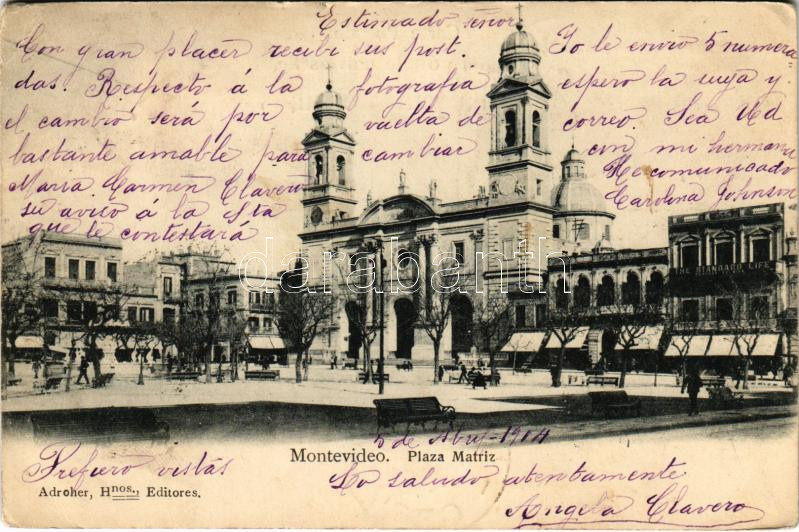 Estimado señor
Con gran placer recibi sus post.
das. Respecto á la fotografía
el cambio será por vuelta de
bastante amable para cambiar
Maria Carmen Clavero
su aviso á la Sta
que le contestará
Yo le envio 5 numera
espero la suya y
correo. Sea Ud
con mi hermana
He comunicado
Carolina Johnson
THE STANDARD LIFE
darabanth
5 de 1904
Montevideo. Plaza Matriz
Prefiero vistas
Lo saludo atentamente
Angela Clavero
Adroher, Hnos., Editores.